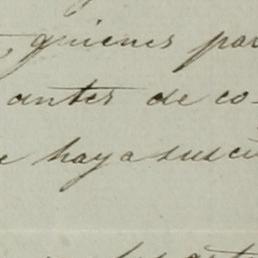 quienes par
antes de co-
haya susci